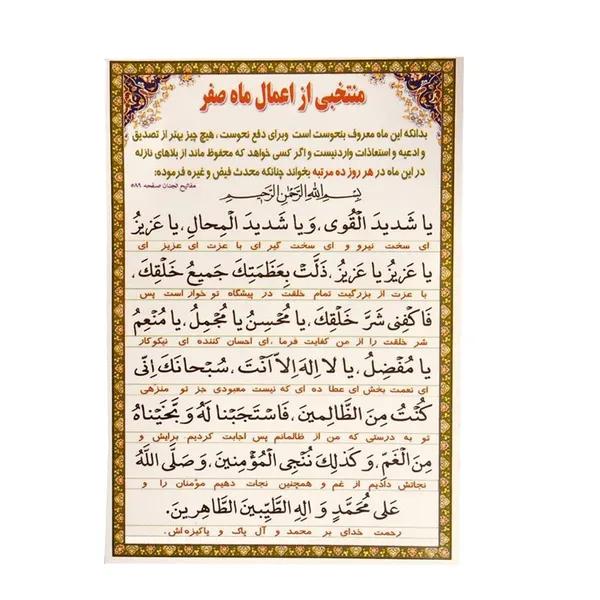 منتخبی از اعمال ماه صفر
بدانکه این ماه معروف بنحوست است وبرای دفع نحوست، هیچ چیز بهتر از تصدیق
و ادعیه و استعاذات واردنیست و اگر کسی خواهد که محفوظ ماند از بلاهای نازله
در این ماه در هر روز ده مرتبه بخواند چنانکه محدث فیض و غیره فرموده:
مفاتیح الجنان صفحه ۵۸۹
بِسْمِ اللهِ الرَّحْمٰنِ الرَّحیمِ
یا شَدیدَ الْقُوی، وَ یا شَدیدَ الْمِحالِ، یا عَزیزُ
ای سخت نیرو و ای سخت گیر ای با عزت ای عزیز ای
یا عَزیزُ یا عَزیزُ، ذَلَّتْ بِعَظَمَتِکَ جَمیعُ خَلْقِکَ،
با عزت از بزرگیت تمام خلقت در پیشگاه تو خوار است پس
فَاکْفِنی شَرَّ خَلْقِکَ، یا مُحْسِنُ یا مُجْمِلُ، یا مُنْعِمُ
شر خلقت را از من کفایت فرما، ای احسان کننده ای نیکوکار
یا مُفْضِلُ، یا لا اِلهَ اِلاّ اَنْتَ، سُبْحانَکَ اِنّی
ای نعمت بخش ای عطا ده ای که نیست معبودی جز تو منزهی
کُنْتُ مِنَ الظّالِمینَ، فَاسْتَجَبْنا لَهُ وَ نَجَّیْناهُ
تو به درستی که من از ظالمانم پس اجابت کردیم برایش و
مِنَ الْغَمِّ، وَ کَذلِکَ نُنْجِی الْمُؤْمِنینَ، وَ صَلَّی اللهُ
نجاتش دادیم از غم و همچنین نجات دهیم مؤمنان را و
عَلی مُحَمَّدٍ وَ الِهِ الطَّیِّبینَ الطّاهِرینَ.
رحمت خدای بر محمد و آل پاک و پاکیزه‌اش.